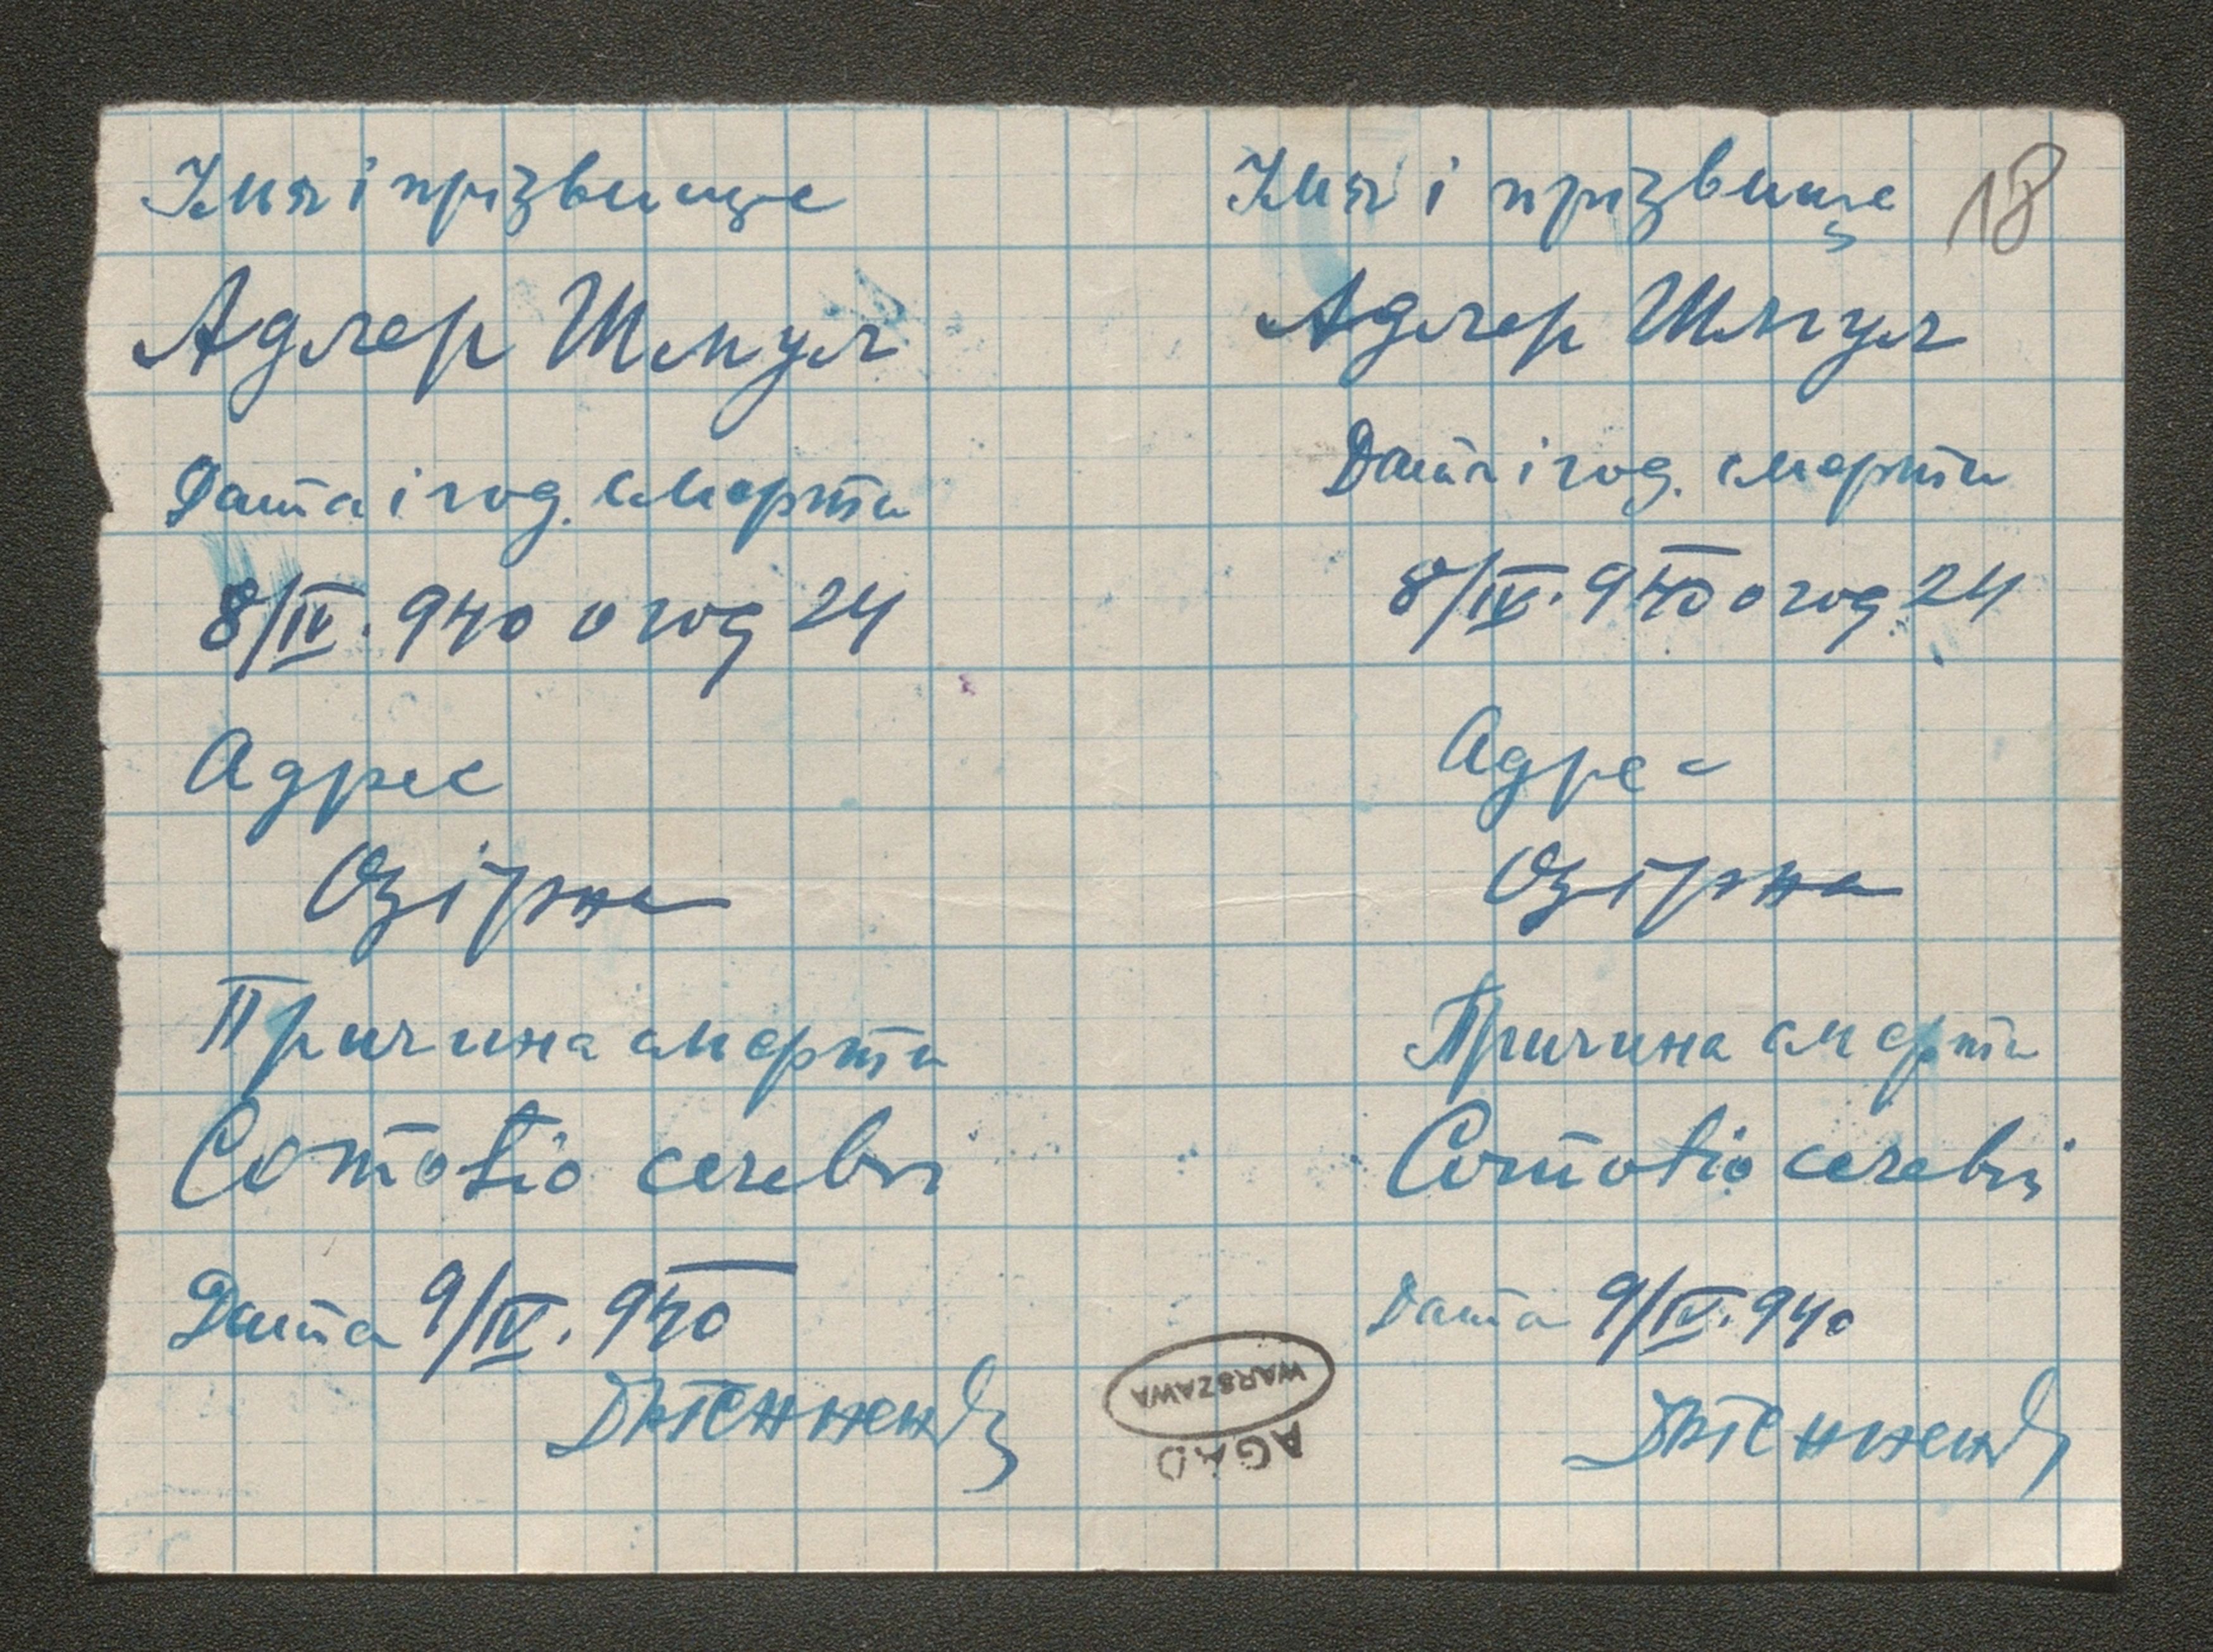 Імя і прізвище
Адлер Шмул
Дата і год. смерти
8/IV. 940 о год 24
Адрес
Озірна
Причина смерти
Comotio cerebri
Дата 9/IV. 940
Імя і прізвище
18
Адлер Шмул
Дата і год. смерти
8/IV. 940 о год. 24
Адрес
Озірна
Причина смерти
Comotio cerebri
Дата 9/IV. 940
AGAD
WARSZAWA